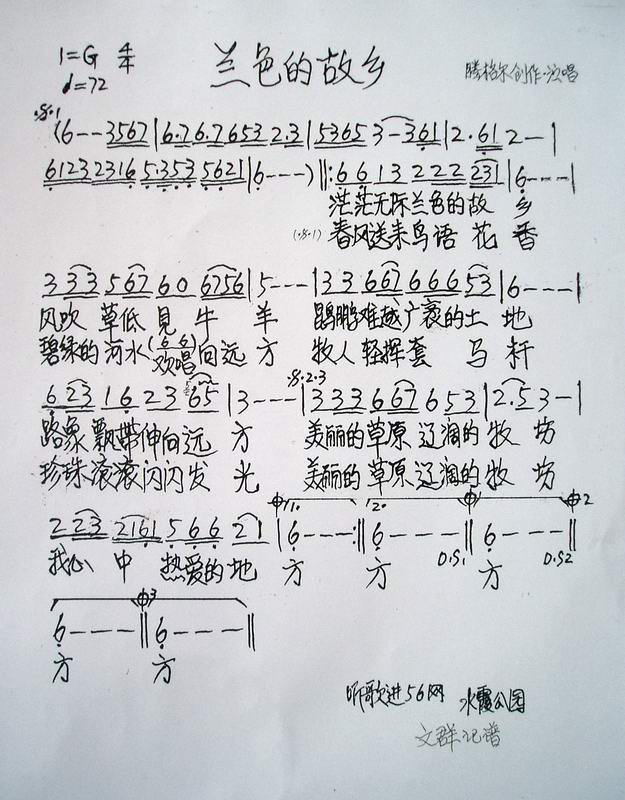 1=G 4/4
兰色的故乡
腾格尔创作·演唱
♩=72
·𝄋·1
(6--3567|6·76·76532·3|53653-361|2·612--|
6123231656·3535621|6---)‖:661322 2231|6---|
茫茫无际兰色的故 乡
(·𝄋·1) 春风送来鸟语花 香
33356760 6756|5---|33667666 53|6---|
风吹草低見牛 羊 鹍鹏难越广袤的土 地
碧绿的河水(66欢唱)向远 方 牧人轻挥套 马 杆
623162365|3---|·𝄋·2·3 33366765 3|2·53-|
路象飘带伸向远 方 美丽的草原辽阔的牧 场
珍珠滚滚闪闪发 光 美丽的草原辽阔的牧 场
2232161566 21|1. 6---:‖2. 6---‖6---‖
我心中 热爱的地 方 方 方
D.S1 D.S2
6---‖6---‖
方 方
听歌进56网 水霞公园
文群记谱